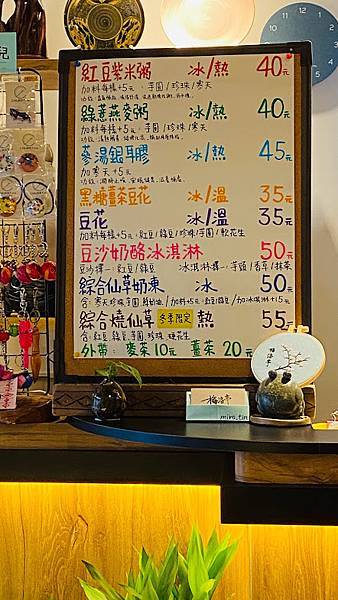 兒
紅豆紫米粥 冰/熱 40元
加料每樣+5元:芋圓/珍珠/寒天
綠薏燕麥粥 冰/熱 40元
加料每樣+5元:芋圓/珍珠/寒天
蔘湯銀耳膠 冰/熱 45元
加寒天+5元
黑糖薑菜豆花 冰/溫 35元
豆花 冰/溫 35元
加料每樣+5元:紅豆/綠豆/珍珠/芋圓/軟花生
豆沙奶酪冰淇淋 50元
豆沙擇一:紅豆/綠豆 冰淇淋擇一:芋頭/香草/抹茶
綜合仙草奶凍 冰 50元
綜合燒仙草 冬季限定 熱 55元
含:紅豆.綠豆.芋圓.珍珠.軟花生
外帶:麥茶10元 薑茶20元
mira.tin